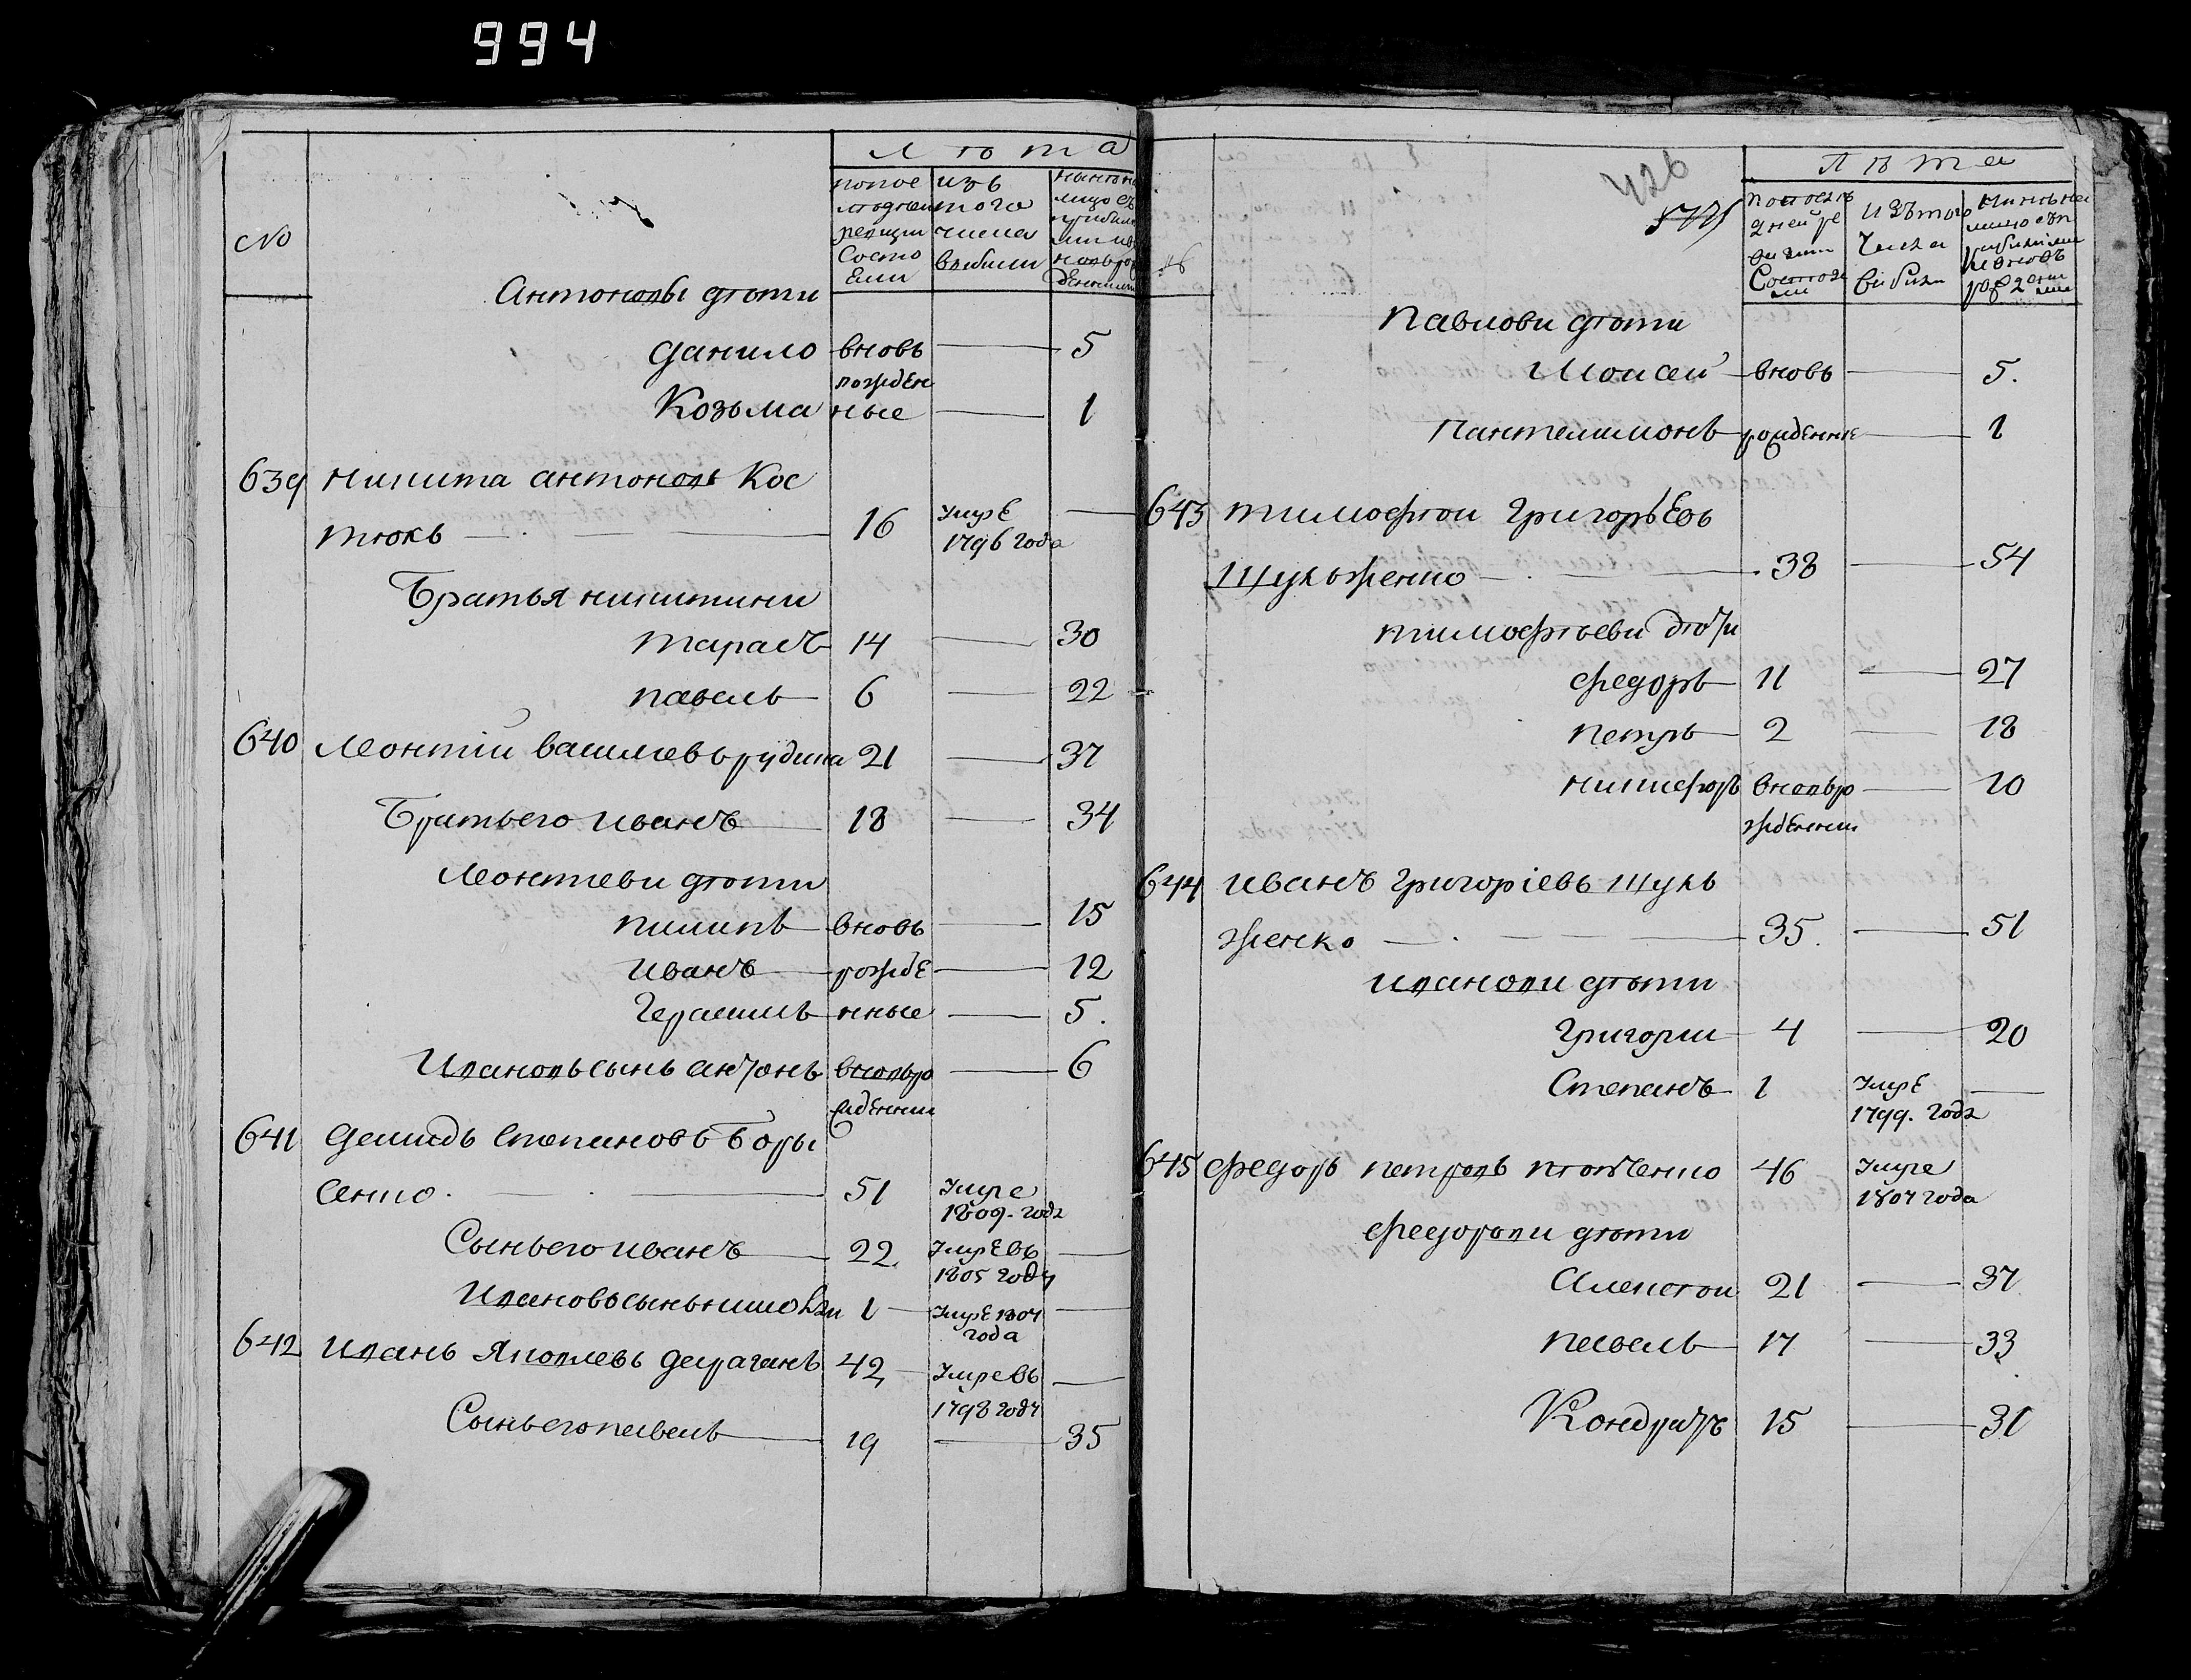 994
Лѣта
№
попос
лѣдней
ревизіи
Состо
Яли
изъ
того
числа
выбыли
Антоновы дѣти
Данило вновь — 5
рожден
Козьма ные — 1
639 Никита Антоновъ Кос
тюкъ — 16 Умре —
1796 года
Братья никитини
Тарасъ 14 — 30
павелъ 6 — 22
640 Леонтій василіевъ рудика 21 — 37
Братъего иванъ 18 — 34
Леонтіеви дѣти
пилипъ вновь — 15
иванъ рожде — 12
Герасимъ нные — 5.
Ивановъ сынъ антонъ вновьро — 6
жденнии
641 Демидъ Степановъ Боры
Сенко — 51 Умре
1809. года
Сынъего иванъ 22. Умре въ —
1805 году
Ивановъ сынъ николаи 1 — Умре 1807 —
года
642 Иванъ Яковлевъ Дераганъ 42 — Умре въ —
1798 году
Сынъего павелъ 19 — 35
426
Лѣта
попослѣ
дней ре
визіи
Состоя
ли
изътого
Числа
выбыли
Павлови дѣти
Моисей вновь — 5.
пантелимонъ рожденніе — 1
643 тимофѣи Григорьевъ
Щулъженко — 38 — 54
тимофѣеви дѣти
Федоръ 11 — 27
петръ 2 — 18
никифоръ вновьро — 10
жденнии
644 иванъ григоріевъ щулъ
женко — 35. — 51
Иванови дѣти
Григории 4 — 20
Степанъ 1 Умре —
1799. года
645 Федоръ петровъ 46 Умре
1807 года
Федорови дѣти
Алексѣи 21 — 37
павелъ 17 — 33
Кондратъ 15 — 31